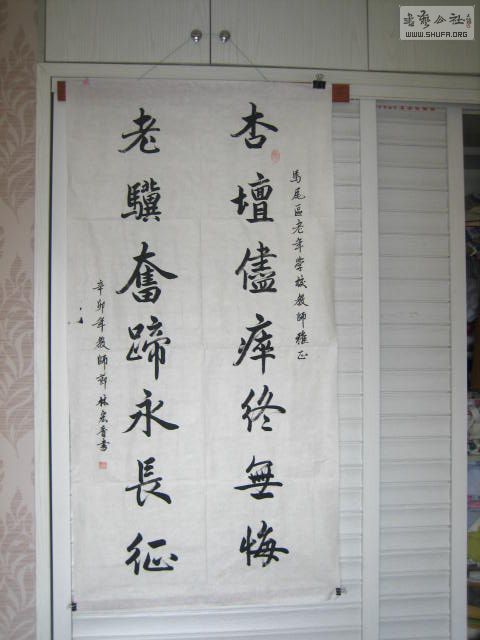 書藝公社
WWW.SHUFA.ORG
杏壇儘瘁終無悔
馬尾區老年學校教師雅正
老驥奮蹄永長征
辛卯年教師節 林
書